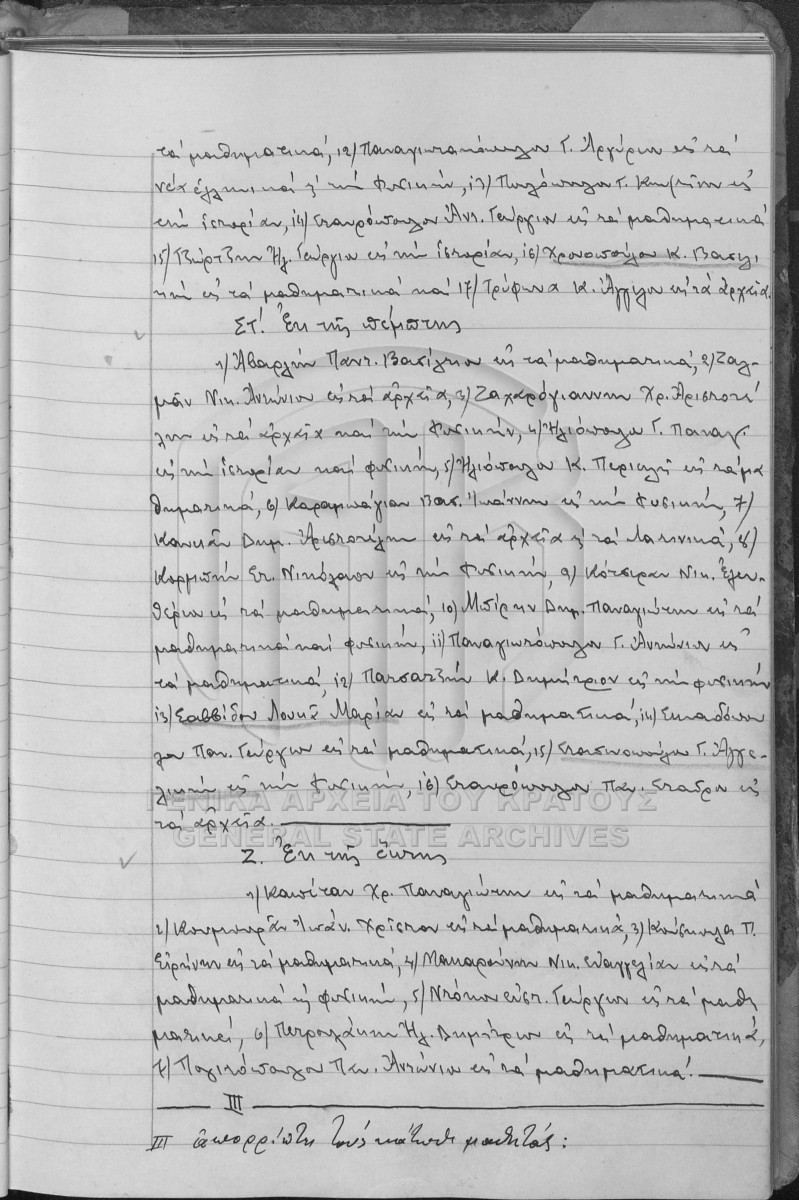 τά μαθηματικά, 12) Παναγιωτακόπουλον Γ. Ἀργύριον εἰς τά
νέα ἑλληνικά κ' τήν Φυσικήν, 13) Γ. εἰς
τήν ἱστορίαν, 14) Σταυρόπουλον Ἀντ. Γεώργιον εἰς τά μαθηματικά
15) Τζώρτζην Ἠλ. Γεώργιον εἰς τήν ἱστορίαν, 16) Χρονοπούλου Κ. Βασιλι
κήν εἰς τά μαθηματικά καί 17) Τρύφωνα Κ. Ἄγγελον εἰς τά ἀρχαῖα.
ΣΤ'. Ἐκ τῆς πέμπτης
1) Παντ. Βασίλειον εἰς τά μαθηματικά, 2) Ζαλ-
μᾶν Νικ. Ἀντώνιον εἰς τά ἀρχαῖα, 3) Ζαχαρόγιαννην Χρ. Ἀριστοτέ
λην εἰς τά ἀρχαῖα καί τήν Φυσικήν, 4) Ἠλιόπουλον Γ. Παναγ.
εἰς τήν ἱστορίαν καί φυσικήν, 5) Ἠλιόπουλον Κ. Περικλῆ εἰς τά μα
θηματικά, 6) Καραμπάγιαν Βασ. Ἰωάννην εἰς τήν Φυσικήν, 7)
Δημ. Ἀριστοτέλην εἰς τά ἀρχαῖα κ' τά Λατινικά, 8)
Στ. Νικόλαον εἰς τήν Φυσικήν, 9) Κότσιραν Νικ. Ἐλευ-
θέριον εἰς τά μαθηματικά, 10) Μπίρην Δημ. Παναγιώτην εἰς τά
μαθηματικά καί φυσικήν, 11) Παναγιωτόπουλον Γ. Ἀντώνιον εἰς
τά μαθηματικά, 12) Πατσατζῆν Κ. Δημήτριον εἰς τήν φυσικήν
13) Σαββίδου Λουκᾶ Μαρίαν εἰς τά μαθηματικά, 14) Σκιαδόπου
λον Παν. Γεώργιον εἰς τά μαθηματικά, 15) Στασινοπούλου Γ. Ἀγγε-
λικήν εἰς τήν Φυσικήν, 16) Σταυρόπουλον Παν. Σταῦρον εἰς
τά ἀρχαῖα.
ΓΕΝΙΚΑ ΑΡΧΕΙΑ ΤΟΥ ΚΡΑΤΟΥΣ
GENERAL STATE ARCHIVES
Ζ. Ἐκ τῆς ἕκτης
1) Καπέταν Χρ. Παναγιώτην εἰς τά μαθηματικά
2) Κουμπουρᾶν Ἰωάν. Χρῆστον εἰς τά μαθηματικά, 3) Π.
Εἰρήνην εἰς τά μαθηματικά, 4) Μακαρούνην Νικ. Εὐαγγελίαν εἰς τά
μαθηματικά κ' φυσικήν, 5) Ντόκον Εὐστ. Γεώργιον εἰς τά μαθη
ματικά, 6) Πετρουλάκην Ἠλ. Δημήτριον εἰς τά μαθηματικά,
7) Πολιτόπουλον Παν. Ἀντώνιον εἰς τά μαθηματικά.
III
III ἀπορρίπτει τούς κάτωθι μαθητάς: